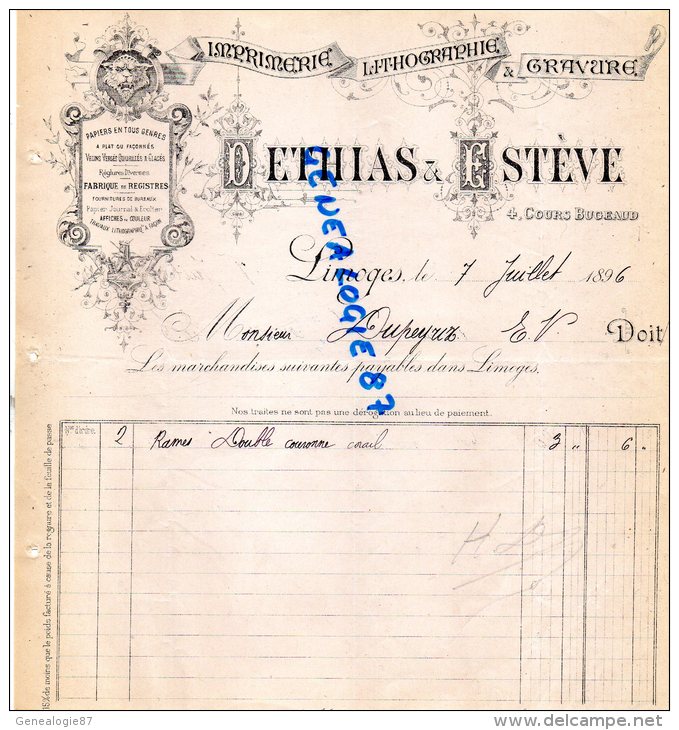 IMPRIMERIE LITHOGRAPHIE & GRAVURE
PAPIERS EN TOUS GENRES
A PLAT OU FAÇONNÉS
VELINS VERGÉS QUADRILLÉS & GLACÉS
Réglures Diverses
FABRIQUE DE REGISTRES
FOURNITURES DE BUREAUX
Papier Journal & Ecolier
AFFICHES DE COULEUR
TRAVAUX LITHOGRAPHIE A FAÇON
DETHIAS & ESTÈVE
4, COURS BUGEAUD
Limoges, le 7 Juillet 1896
Monsieur Dupeyrix E V Doit
Les marchandises suivantes payables dans Limoges.
Nos traites ne sont pas une dérogation au lieu de paiement.
Nos d'ordre. 2 Rames Double couronne corail 3 " 6 "
15% de moins que le poids facturé à cause de la rognure et de la feuille de passe
GENEALOGIE87
Genealogie87
delcampe.net